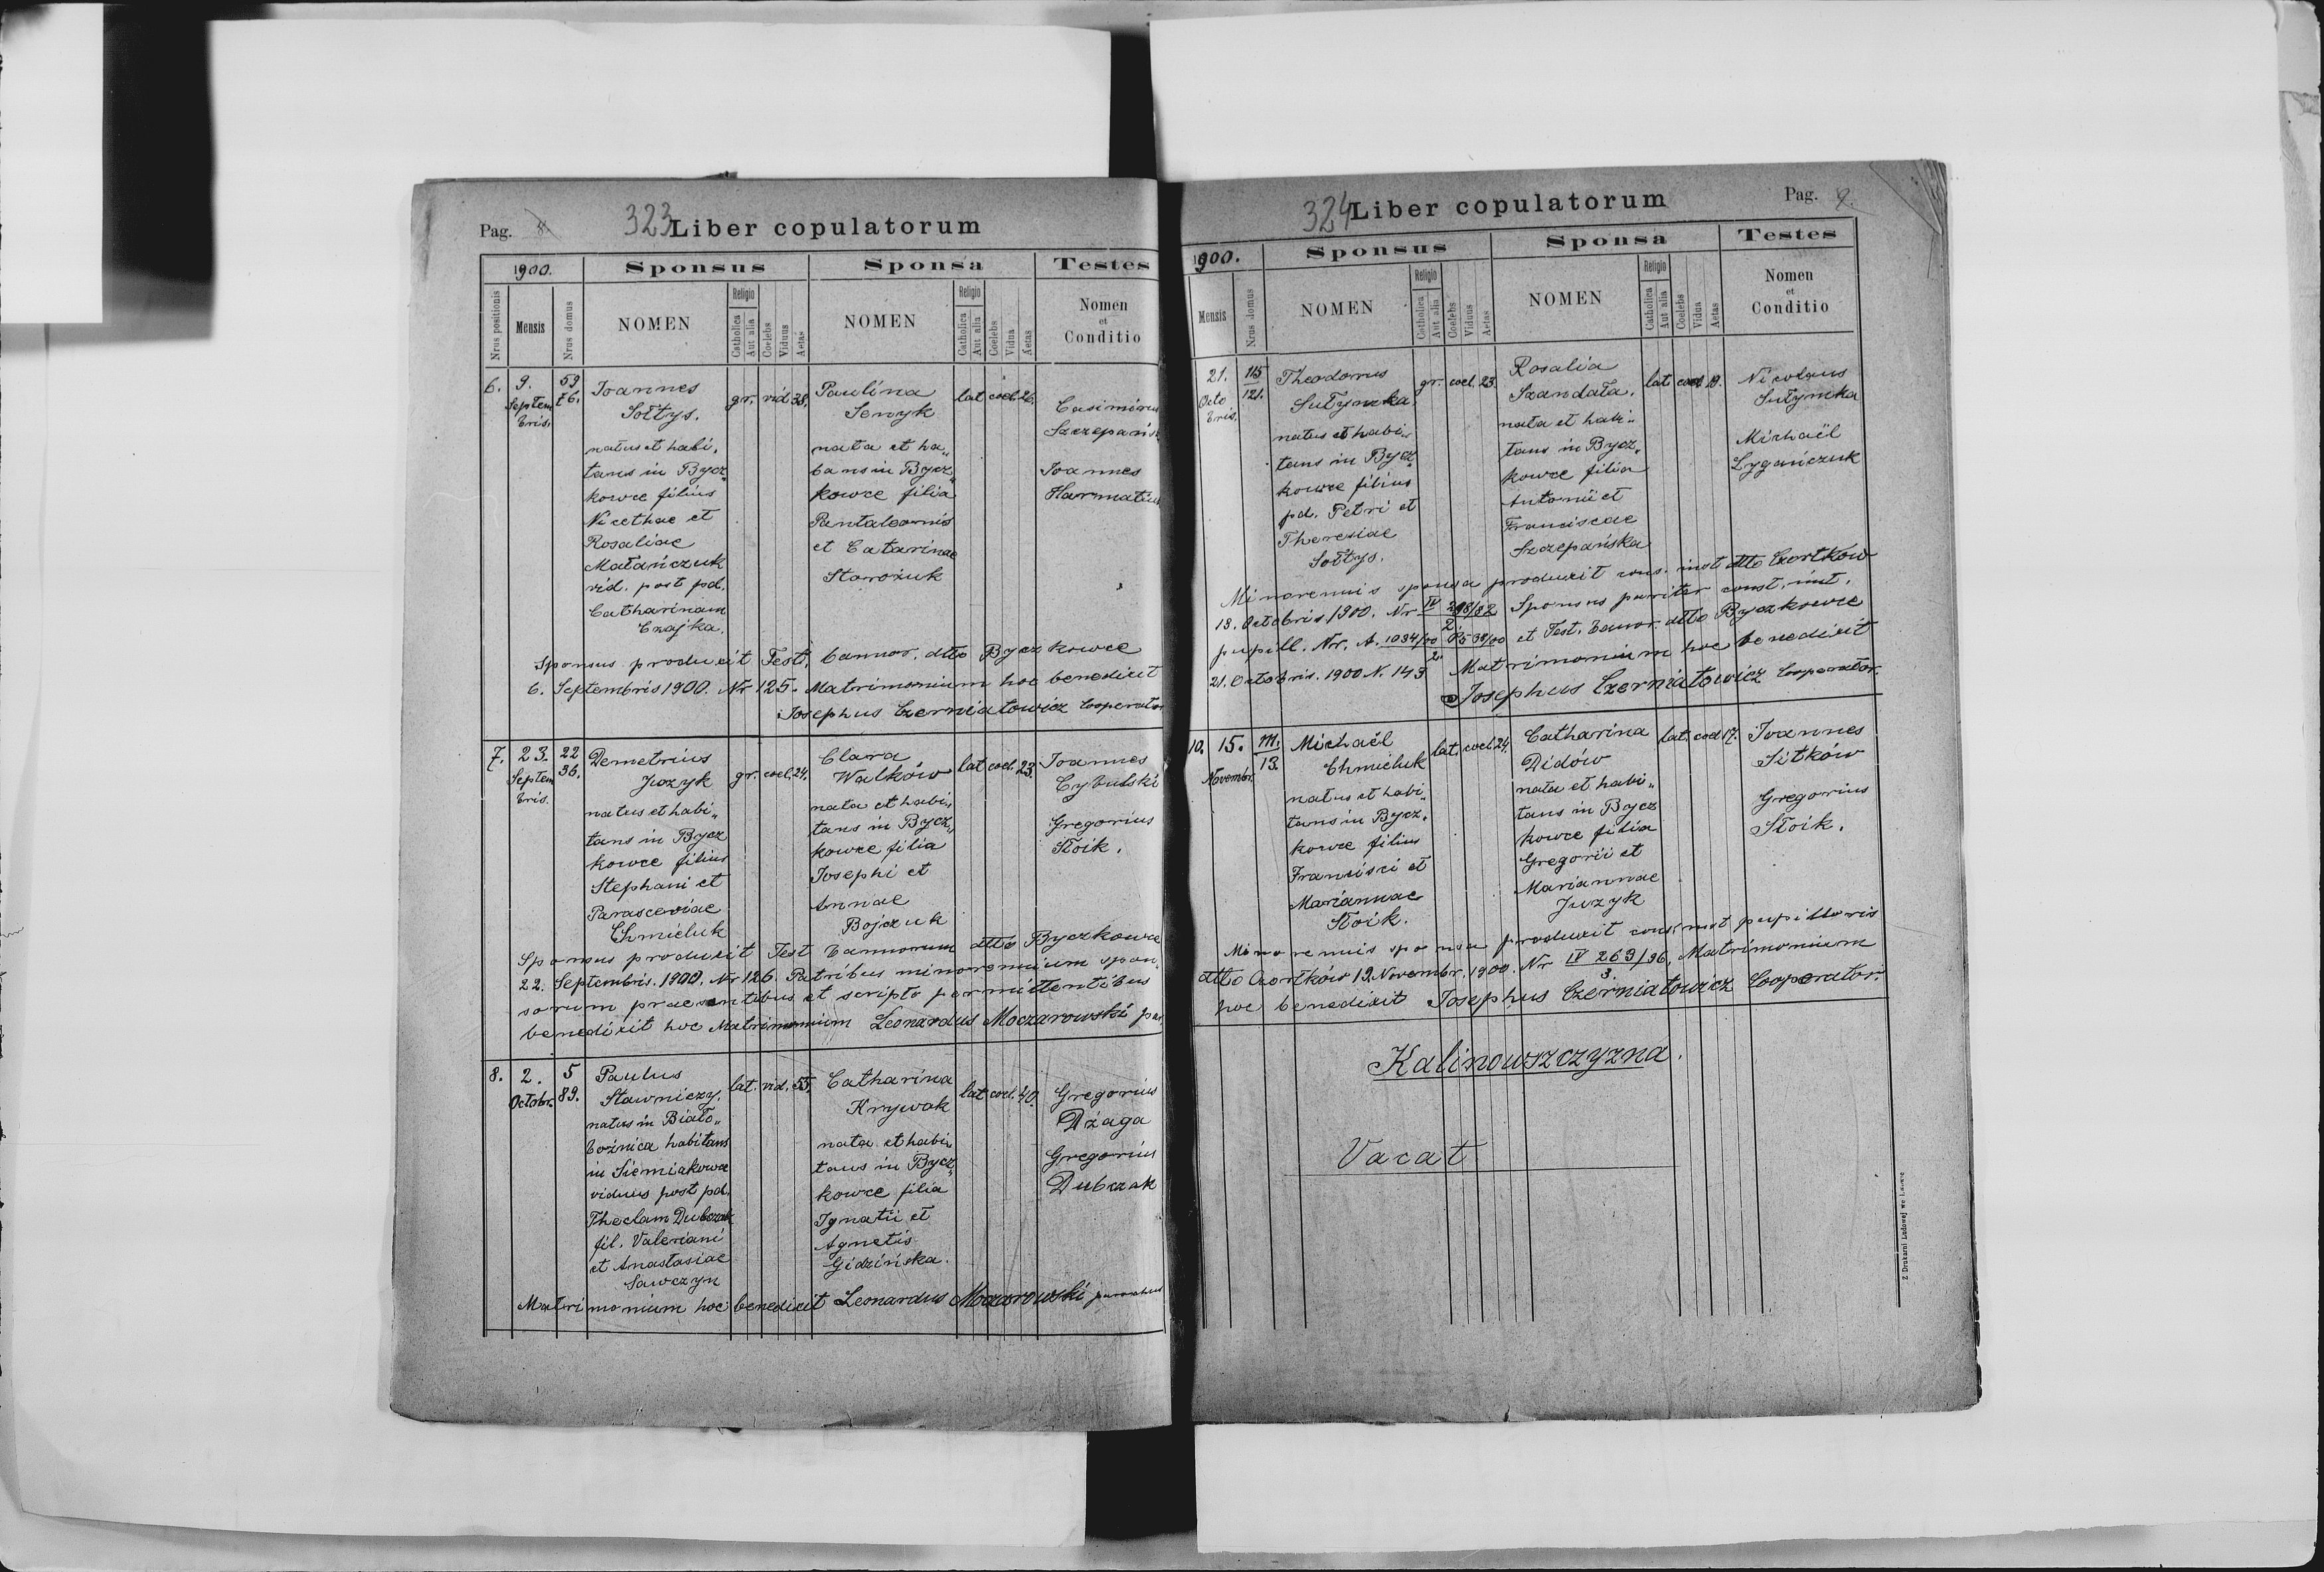 Pag. 8.
323 Liber copulatorum
1900.
Sponsus
Sponsa
Testes
Nrus positionis
Mensis
Nrus domus
NOMEN
Religio
Catholica
Aut alia
Coelebs
Viduus
Aetas
NOMEN
Religio
Catholica
Aut alia
Coelebs
Vidua
Aetas
Nomen
et
Conditio
6.
9.
Septem
bris.
59
76.
Joannes
Sołtys.
natus et habi„
tans in Bycz„
kowce filius
Nicethae et
Rosaliae
Matańczuk
vid. post pd.
Catharinam
Czajka.
gr. vid 38.
Paulina
Senyk
nata et ha„
bans in Bycz„
kowce filia
Pantaleonis
et Catarinae
Starożuk
lat coel. 26.
Casimirus
Szczepańs
Joannes
Harmatiuk
Sponsus produxit Test. bannor. dtto Byczkowce
6. Septembris 1900. Nr 125. Matrimonium hoc benedixit
Josephus Czerniatowicz Cooperator
7.
23.
Septem
bris.
22
36.
Demetrius
Juzyk
natus et habi„
tans in Bycz
kowce filius
Stephani et
Parasceviae
Chmieluk
gr. coel. 24.
Clara
Walków
nata et habi„
tans in Bycz„
kowce filia
Josephi et
Annae
Bojczuk
lat coel. 23.
Joannes
Cybulski
Gregorius
Stoik.
Sponsus produxit Test bannorum dtto Byczkowce
22. Septembris. 1900. Nr 126 Patribus minorennium spon„
sorum praesentibus et scripto permittentibus
benedixit hoc Matrimonium Leonardus Moczarowski par
8.
2.
Octobr.
5
89.
Paulus
Sławniczy.
natus in Biało„
bożnica habitans
in Siemiakowce
viduus post pd.
Theclam Dubczak
fil. Valeriani
et Anastasiae
Sawczyn
lat. vid. 55.
Catharina
Krywak
nata et habi„
tans in Bycz„
kowce filia
Ignatii et
Agnetis
Gidzińska.
lat coel. 40.
Gregorius
Dżaga
Gregorius
Dubczak
Matrimonium hoc benedixit Leonardus Moczarowski parochus
324 Liber copulatorum
Pag. 9.
1900.
Sponsus
Sponsa
Testes
Mensis
Nrus domus
NOMEN
Religio
Catholica
Aut alia
Coelebs
Viduus
Aetas
NOMEN
Religio
Catholica
Aut alia
Coelebs
Vidua
Aetas
Nomen
et
Conditio
21.
Octo
bris.
115
121.
Theodorus
Sutymka.
natus et habi„
tans in Bycz„
kowce filius
pd. Petri et
Theresiae
Sołtys.
gr. coel. 23.
Rosalia
Szandała.
nata et habi„
tans in Bycz„
kowce filia
Antonii et
Franciscae
Szczepańska
lat coel 19.
Nicolaus
Sutymka
Michaël
Lygańczuk
Minorennis sponsa produxit cons. inst dtto Czortków
18. Octobris 1900. Nr IV 298/82 Sponsus pariter const. inst.
2
pupill. Nr. A. 1034/00 P. 538/00 et Test. bannor. dtto Byczkowce
2
21. Octobris. 1900 N. 143 Matrimonium hoc benedixit
Josephus Czerniatowicz Cooperator.
10.
15.
Novembr.
111.
13.
Michaël
Chmieluk
natus et habi„
tans in Bycz„
kowce filius
Francisci et
Mariannae
Stoik.
lat. coel. 24.
Catharina
Didów
nata et habi„
tans in Bycz
kowce filia
Gregorii et
Mariannae
Juzyk
lat. coel 17.
Joannes
Sitków
Gregorius
Stoik.
Minorennis sponsa produxit cons. inst pupillaris
dtto Czortków 12. Novembr. 1900. Nr IV 269/96, Matrimonium
3.
hoc benedixit Josephus Czerniatowicz Cooperator.
Kalinowszczyzna.
Vacat
Z Drukarni Ludowej we Lwowie